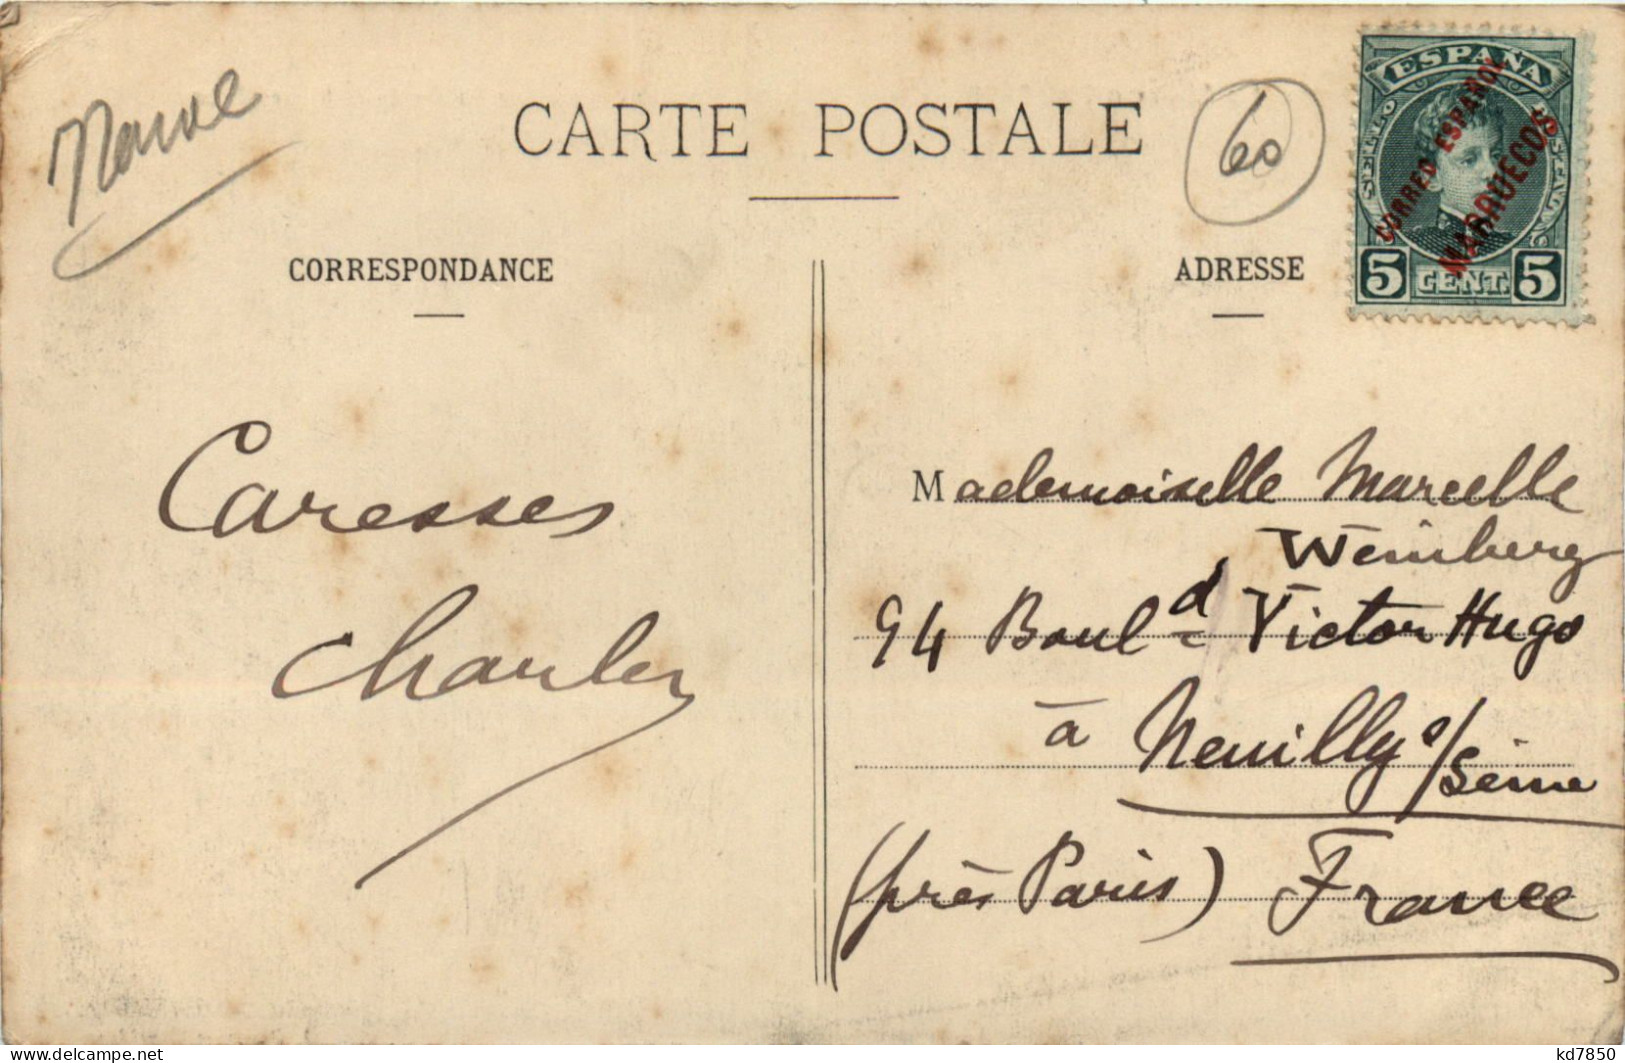 CARTE POSTALE
60
ESPAÑA
SELLO
POSTAL
CORREO ESPAÑOL
MARRUECOS
5 CENT. 5
CORRESPONDANCE
ADRESSE
Caresses
Charles
Mademoiselle Marcelle
Weinberg
94 Boul d Victor Hugo
à Neuilly s/Seine
(près Paris) France
kd7850